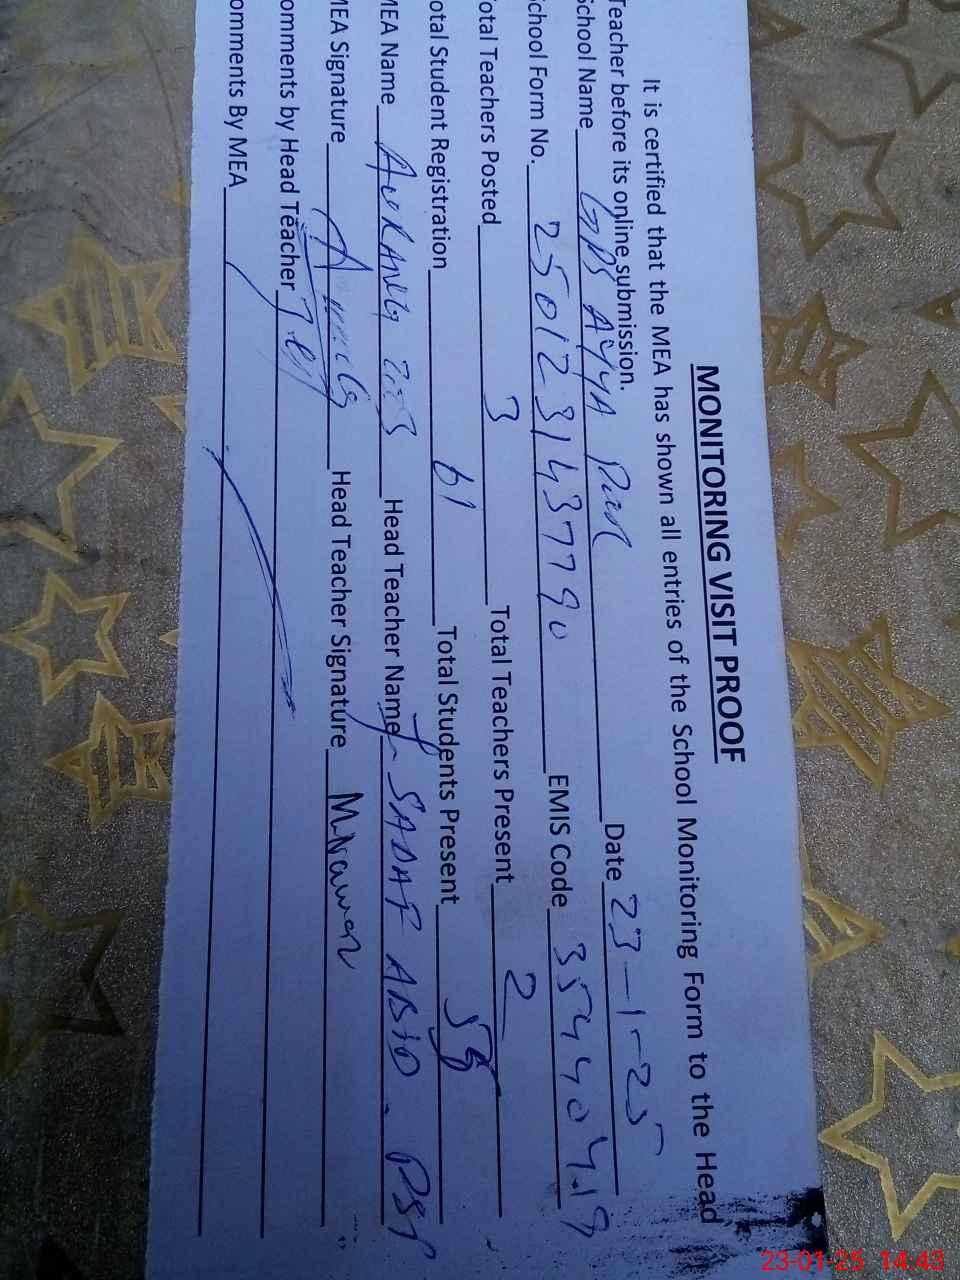 MONITORING VISIT PROOF
It is certified that the MEA has shown all entries of the School Monitoring Form to the Head
Teacher before its online submission.
School Name GPS AYYA Date 23-1-25
School Form No. 2501231437790 EMIS Code 35440419
Total Teachers Posted 3 Total Teachers Present 2
Total Student Registration 61 Total Students Present 58
MEA Name AURANG Head Teacher Name SADAF ABID. PST
MEA Signature Head Teacher Signature M.Nawaz
omments by Head Teacher
omments By MEA
23-01-25 14:43